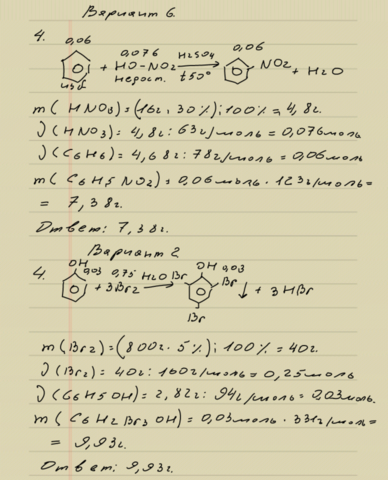 Вариант 6.
4.
0,06 0,076 H2SO4 0,06
+ HO-NO2 → NO2 + H2O
t50°
m(HNO3)=(16г.30%):100%=4,8г.
ν(HNO3)=4,8г:63г/моль=0,076моль
ν(C6H6)=4,68г:78г/моль=0,06моль
m(C6H5NO2)=0,06моль·123г/моль=
= 7,38г.
Ответ: 7,38г.
Вариант 2
4. OH 0,03 0,75 H2O Br OH 0,03 Br
+ 3Br2 → ↓ + 3HBr
Br
m(Br2)=(800г.5%):100%=40г.
ν(Br2)=40г:160г/моль=0,25моль
ν(C6H5OH)=2,82г:94г/моль=0,03моль.
m(C6H2Br3OH)=0,03моль·331г/моль=
= 9,93г.
Ответ: 9,93г.